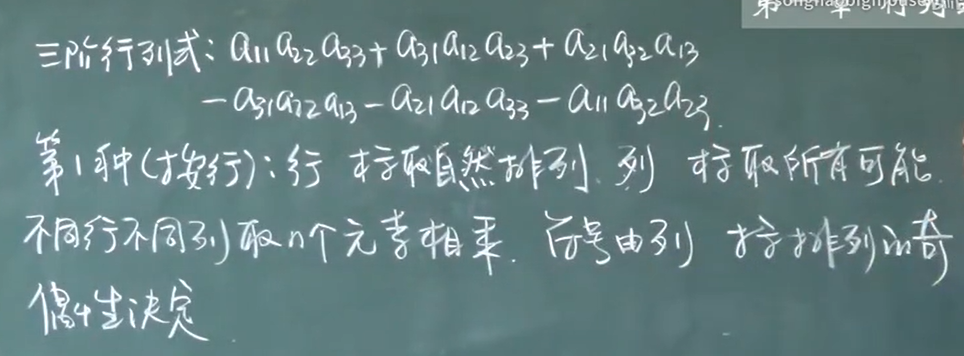 三阶行列式: a₁₁a₂₂a₃₃+a₃₁a₁₂a₂₃+a₂₁a₃₂a₁₃
-a₃₁a₂₂a₁₃-a₂₁a₁₂a₃₃-a₁₁a₃₂a₂₃.
第1种(按行):行 标取自然排列. 列 标取所有可能.
不同行不同列取n个元素相乘. 符号由列 标排列的奇
偶性决定.